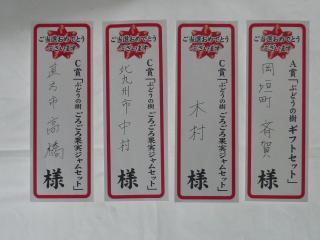 ご当選おめでとう
ございます
A賞「ぶどうの樹 ギフトセット」
岡垣町 斉賀
様
ご当選おめでとう
ございます
C賞「ぶどうの樹 ごろごろ果実ジャムセット」
木村
様
ご当選おめでとう
ございます
C賞「ぶどうの樹 ごろごろ果実ジャムセット」
北九州市 中村
様
ご当選おめでとう
ございます
C賞「ぶどうの樹 ごろごろ果実ジャムセット」
直方市 高橋
様